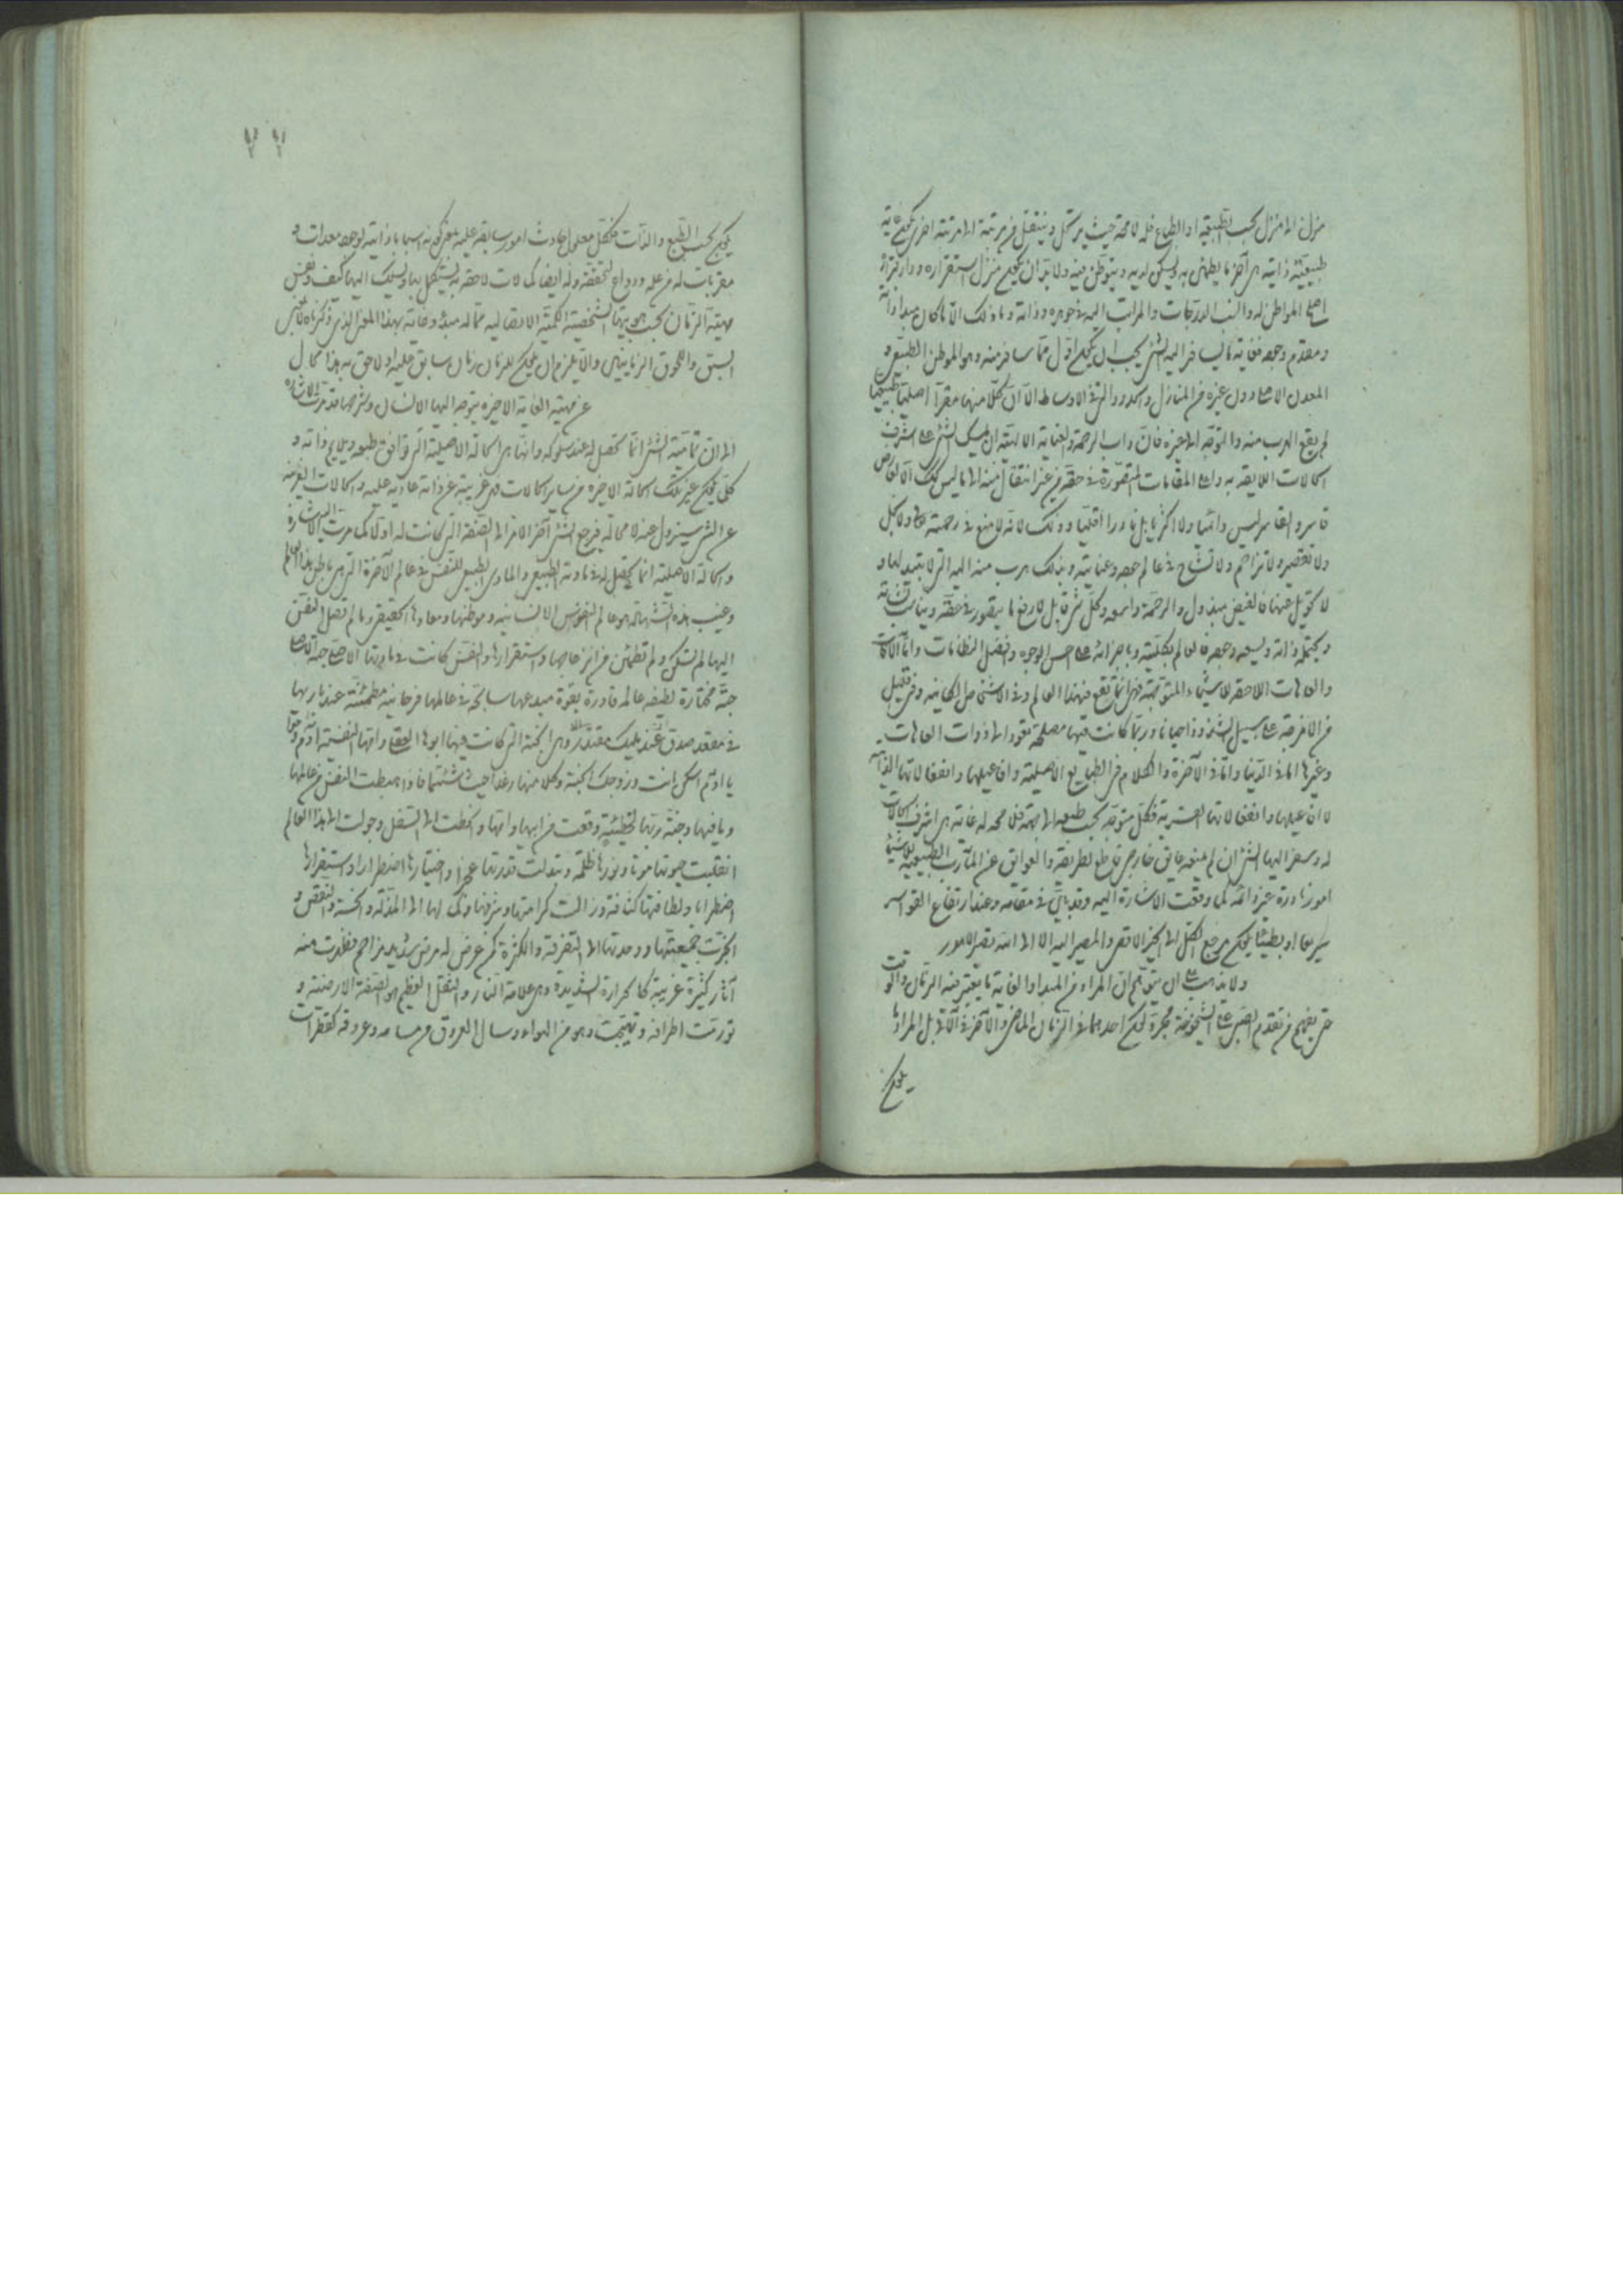 منزل الى منزل بحسب الطبيعة او الطباع فله لا محة حيث يرتحل وينتقل من مرتبة الى مرتبة اخرى يكون غاية
طبيعية ذاتية هى آخر ما يطمئن به ويسكن لديه ويتوطن فيه ولا بد ان يكون منزل استقراره ودار قراره
اصلى المواطن له وانسب الدرجات والمراتب اليه فى جوهره وذاته وما ذلك الا ما كان مبدا ذاته
ومقدم وجوده فغاية ما يسافر اليه الشئ يجب ان يكون اول ما سافر منه وهو الموطن الطبيعى و
المعدن الاصلى دون غيره من المنازل والحدود التى فى الاوساط الا ان كلا منها مقرا اصليا طبيعيا
لم يقع الهرب منه والتوجه الى غيره فان واهب الرحمة والعناية الالهية ان يسلك الشئ على اشرف
الكمالات اللايقة به واعلى المقامات المتصورة فى حقه من غير انتقال منه الى ما ليس كذلك الا لعارض
قاسر والقاسر ليس دائميا ولا اكثريا بل نادرا اقليا وذلك لانه لا منع فى رحمته تعالى ولا بخل
ولا تقصير ولا تزاحم ولا تشاح فى عالم جوده وعنايته وبذلك هرب منه اليه التى لا تبديل لها و
لا تحويل عنها فالفيض مبذول والرحمة واسعة وكل شئ قابل لارفع ما يتصور فى حقه ويناسب
ويحتمله ذاته ويسعه وجوده فالعالم بكليته وباجزائه على احسن الوجوه وافضل النظامات واما الآفات
والعاهات اللاحقة للاشياء المتوجهة فهى انما تقع فى هذا العالم وفى الاشخاص الكائنة وفى قليل
من الامزجة على سبيل الشذوذ احيانا وربما كانت فيها مصلحة تعود الى ذوات العاهات
وغيرها اما فى الدنيا واما فى الآخرة والكلام فى الطبايع الاصلية وافاعيلها وانفعالاتها الذاتية
لا افاعيلها وانفعالاتها القسرية فكل متوجه بحسب طبعه الى جهة فلا محة له غاية هى اشرف الكمالات
له وسعى اليها الشئ ان لم يمنعه عايق خارجى قاطع لطريقه والعوايق عن المآرب الطبيعية للاشياء
امور نادرة غير دائمة كما وقعت الاشارة اليه وقد بين فى مقامه وعند ارتفاع القواسر
سريعا او بطيئا يكون مرجع الكل الى الخير الاقصى والمصير اليه الا الى الله تصير الامور
ولا يذهب عليك ان يتوهم ان المراد من المبدا والغاية ما يعتبر فيه الزمان والوقت
حتى يفهم من تقدم الصبى على الشيخوخة مجرد كون احدهما فى الزمان الماضى والآخر فى الآتى بل المراد ما
يكون
٧٦
يكون بحسب الطبع والذات فلكل معلول حادث امور سابقة عليه بعضها كونه اسبابا ذاتية لوجوده معدات و
مقربات له من علله ودواع لتحققه وله ايضا كمالات لاحقة به يستكمل بها ويسلك اليها كيف ونفس
مهية الزمان بحسب هويتها الشخصية الكمية الاتصالية مما له مبدء وغاية بهذا المعنى الذى ذكرناه
السبق واللحوق الزمانيين والا يلزم ان يكون للزمان زمان سابق عليه ولاحق به هذا محال
عن مهية الغاية الاخيرة يتوجه اليها الانسان وشرحها قد مرت الاشارة
الى ان تمامية الشئ انما تحصل له عند سلوكه وانتهائه الى كماله الاصلية التى توافق طبعه ويلايم ذاته و
كل ما يكون غير تلك الحالة الاخيرة من ساير الكمالات فهى غريبة عن ذاته عارية عليه والكمالات الغريبة
عن الشئ سيزول عنه لا محالة فيرجع الشئ آخر الامر الى الصفة التى كانت له اولا كما مرت اليه الاشارة
وكماله الاصلية انما يحصل له فى مادته الطبيعى والماوى الطبيعى للنفس فى عالم الآخرة التى هى باطن هذا العالم
وغيب هذه الشهادة هو عالم النفوس الانسانية وموطنها ومعادها الحقيقى وما لم تصل النفس
اليها لم تسكن ولم تطمئن من انزعاجها واستقرارها والنفس كانت فى مادتها الاصلية حية بالاصل
جنة مختارة لطيفة عالمة قادرة بقوة مبدعها سابحة فى عالمها فرحانية مطمئنة عند بارئها
فى مقعد صدق عند مليك مقتدر وهى الجنة التى كانت فيها ابوها العقل وامها النفس آدم وحوا
يا آدم اسكن انت وزوجك الجنة وكلا منها رغدا حيث شئتما فاذا هبطت النفس من عالمها
وما فيها وجنة ربها لخطيئة وقعت من ابيها وامها وانحطت الى السفل وحولت الى هذا العالم
انقلبت حيوتها موتا ونورها ظلمة وتبدلت قدرتها عجزا واختيارها اضطرارا واستقرارها
اضطرابا ولطافتها كثافة وزالت كرامتها وشرفها وكمالها الى المذلة والخسة والنقص و
انجرت جمعيتها ووحدتها الى التفرقة والكثرة كمن عرض له مرض شديد مزاحم فظهرت منه
آثار كثيرة غريبة كالحرارة الشديدة وهى علامة النار والثقل العظيم وهو الصفة الارضية و
تورمت اطرافه وتهيجت وهو من الهواء وسال العروق من مسامه وعروقه كقطرات